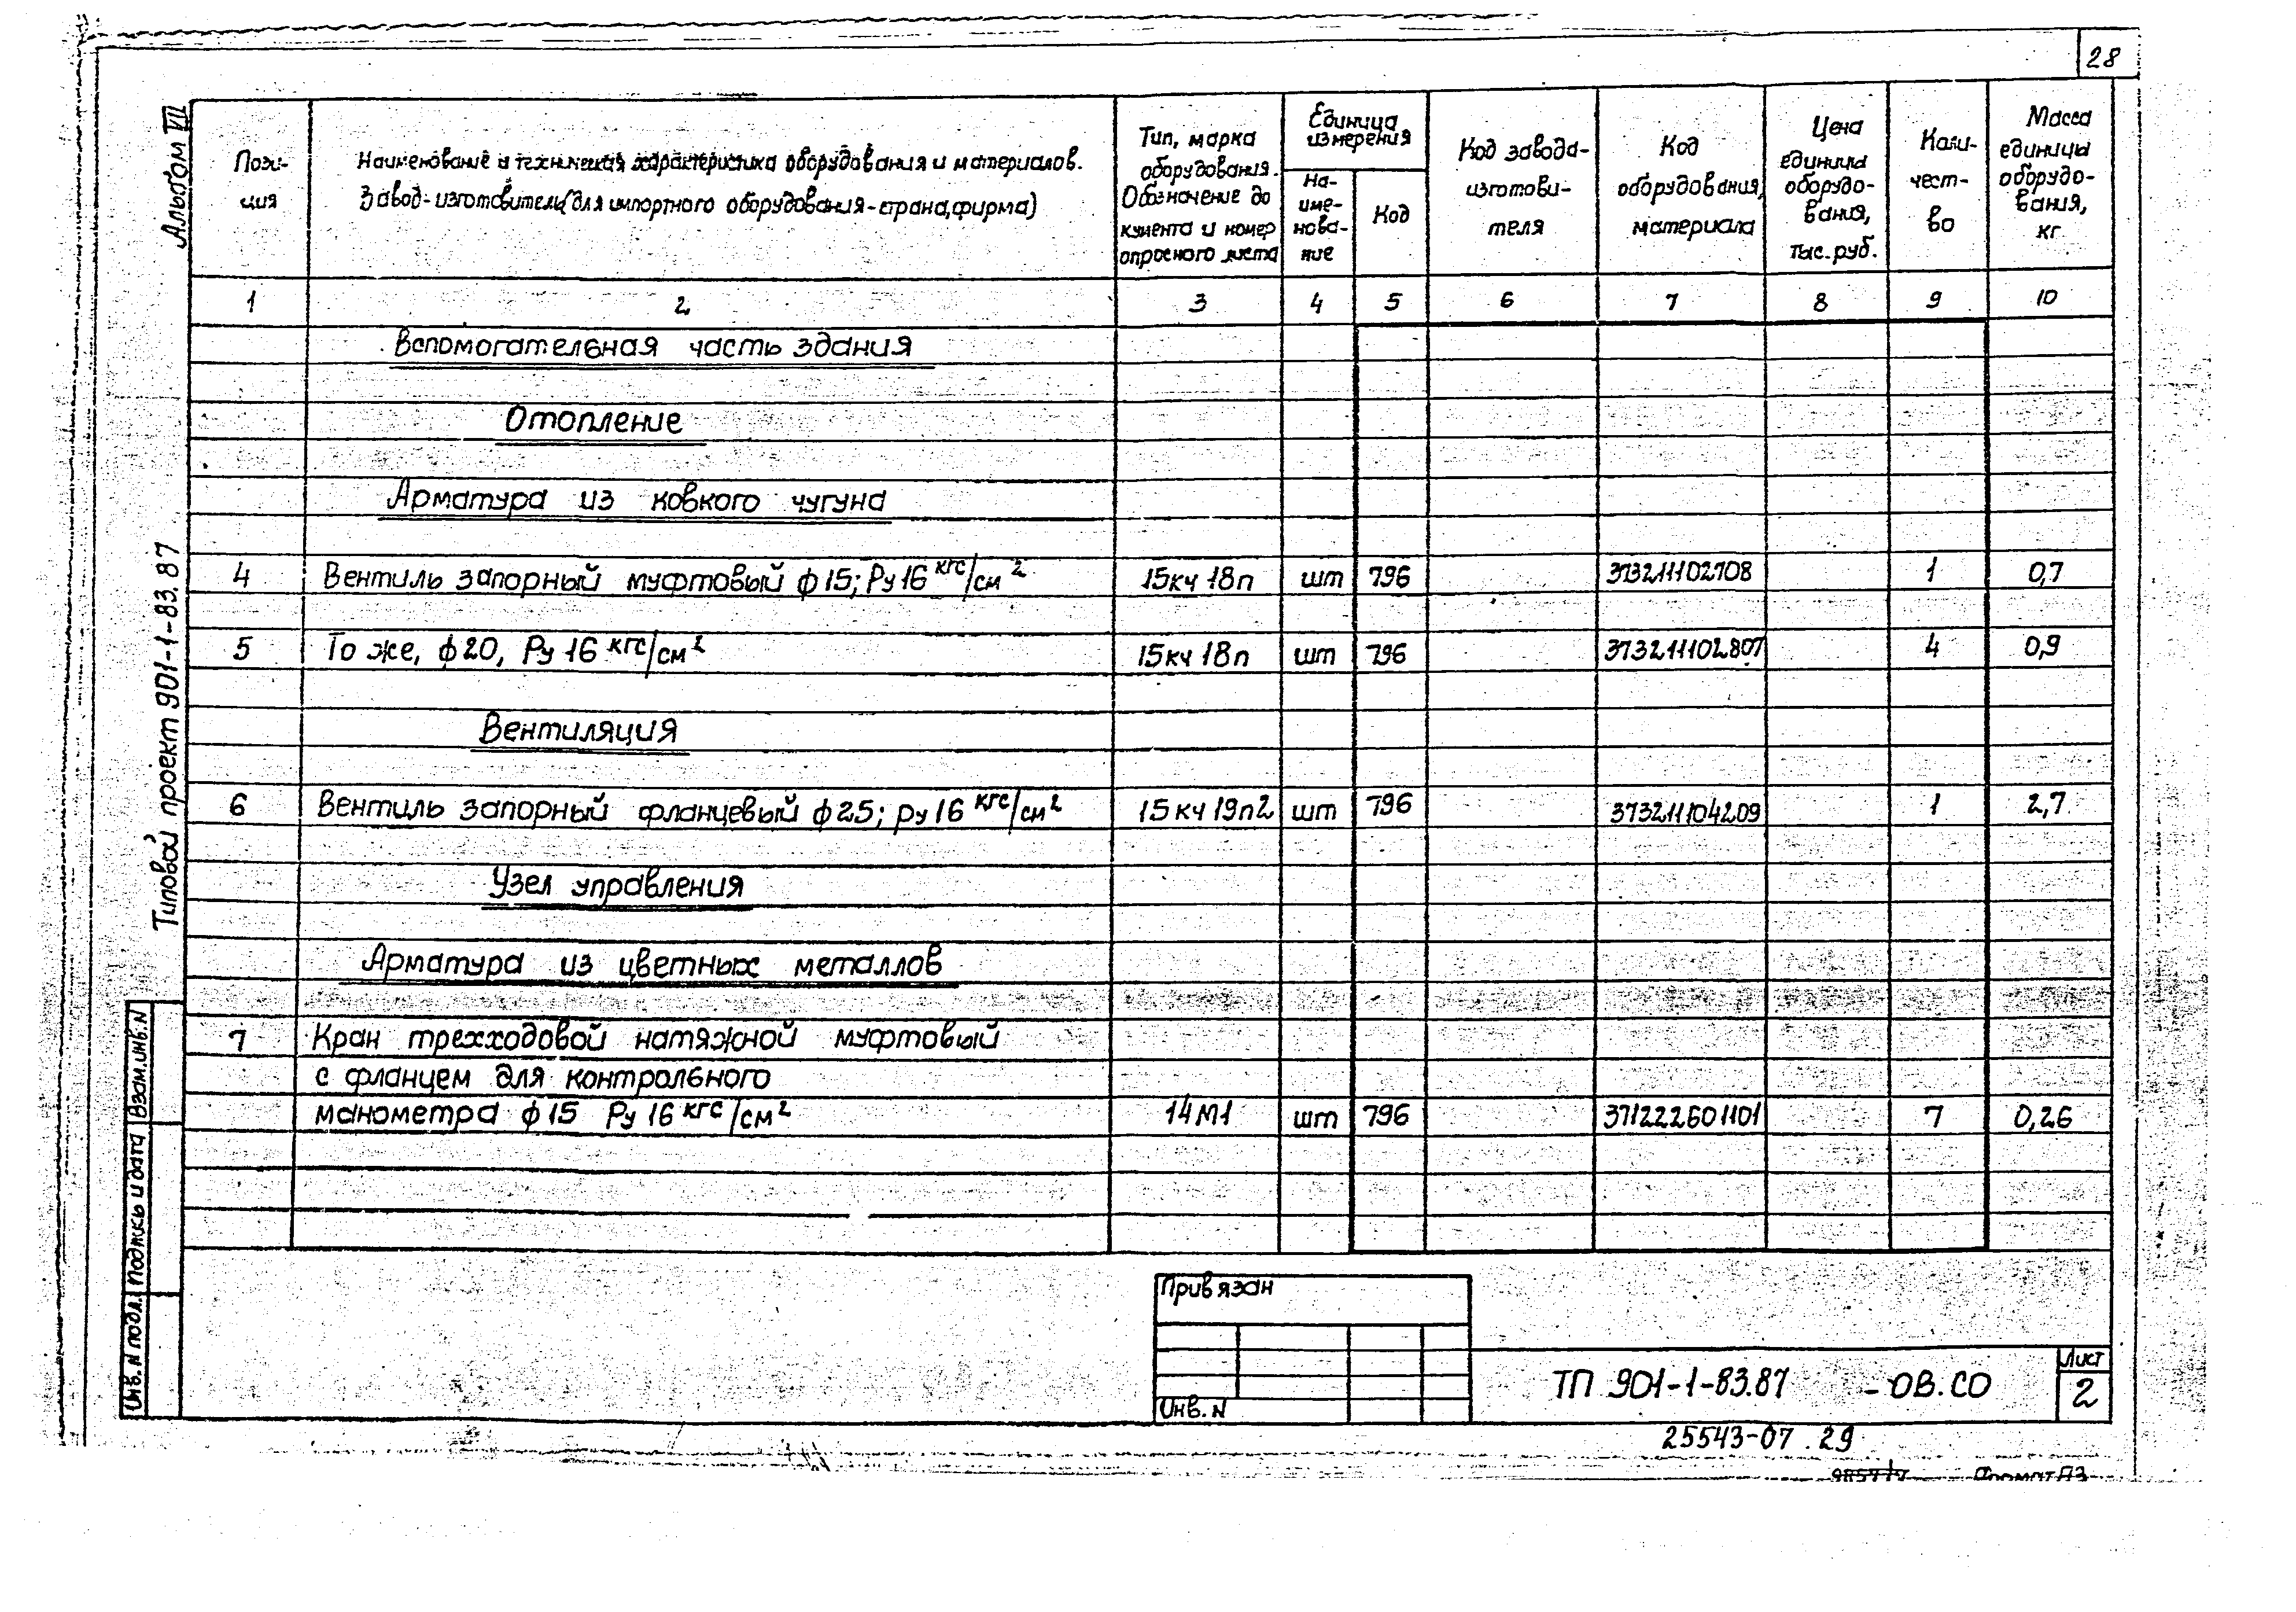 28
Альбом VII
Типовой проект 901-1-83.87
Пози-
ция
Наименование и техническая характеристика оборудования и материалов.
Завод-изготовитель (для импортного оборудования-страна, фирма)
Тип, марка
оборудования.
Обозначение до
кумента и номер
опросного листа
Единица
измерения
На-
име-
нова-
ние
Код
Код завода-
изготови-
теля
Код
оборудования,
материала
Цена
единицы
оборудо-
вания,
тыс. руб.
Коли-
чест-
во
Масса
единицы
оборудо-
вания,
кг
1 2 3 4 5 6 7 8 9 10
Вспомогательная часть здания
Отопление
Арматура из ковкого чугуна
4 Вентиль запорный муфтовый ф15; Ру 16 кгс/см² 15кч 18п шт 796 373211102708 1 0,7
5 То же, ф20, Ру 16 кгс/см² 15кч 18п шт 796 373211102807 4 0,9
Вентиляция
6 Вентиль запорный фланцевый ф25; Ру 16 кгс/см² 15 кч 19п2 шт 796 373211104209 1 2,7
Узел управления
Арматура из цветных металлов
7 Кран трехходовой натяжной муфтовый
с фланцем для контрольного
манометра ф15 Ру 16 кгс/см² 14М1 шт 796 371222601101 7 0,26
Взам. инв. N
Подпись и дата
Инв. N подл.
Привязан
Инв. N
ТП 901-1-83.87 -ОВ.СО
Лист
2
25543-07 29
Формат А3